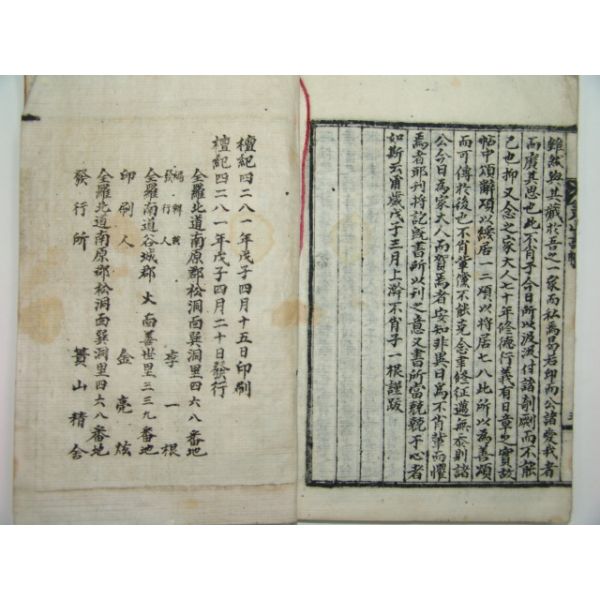 雖然與其藏於吾之一家而私焉曷若印而公諸愛我者
而廣其思也此不肖子今日所以泣涕付諸剞劂而不能
已也抑又念之家大人七十年修德行義有日章之實故
帖中頌辭項以綏居一二頌以將居七八此所以為善頌
而可傳於後也不肖輩儻不能克念聿修征邁無忝則諸
公今日為家大人而賀焉者安知非異日為不肖輩而懼
焉者耶刊將訖旣書所以刊之意又書所當兢兢于心者
如斯云爾歲戊子三月上澣不肖子一根謹跋
檀紀四二八一年戊子四月十五日印刷
檀紀四二八一年戊子四月二十日發行
全羅北道南原郡松洞面巽洞里四六八番地
編輯兼
發行人 李一根
全羅南道谷城郡火面善世里三三九番地
印刷人 金亮炫
全羅北道南原郡松洞面巽洞里四六八番地
發行所 蕢山精舍